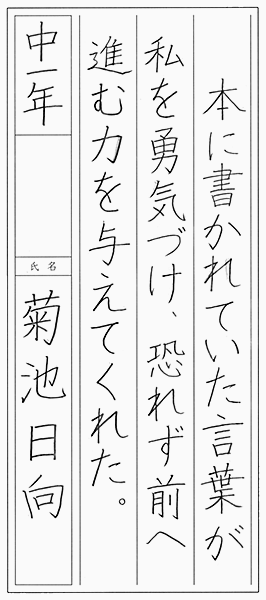 本に書かれていた言葉が
私を勇気づけ、恐れず前へ
進む力を与えてくれた。
中一年
氏名
菊池日向